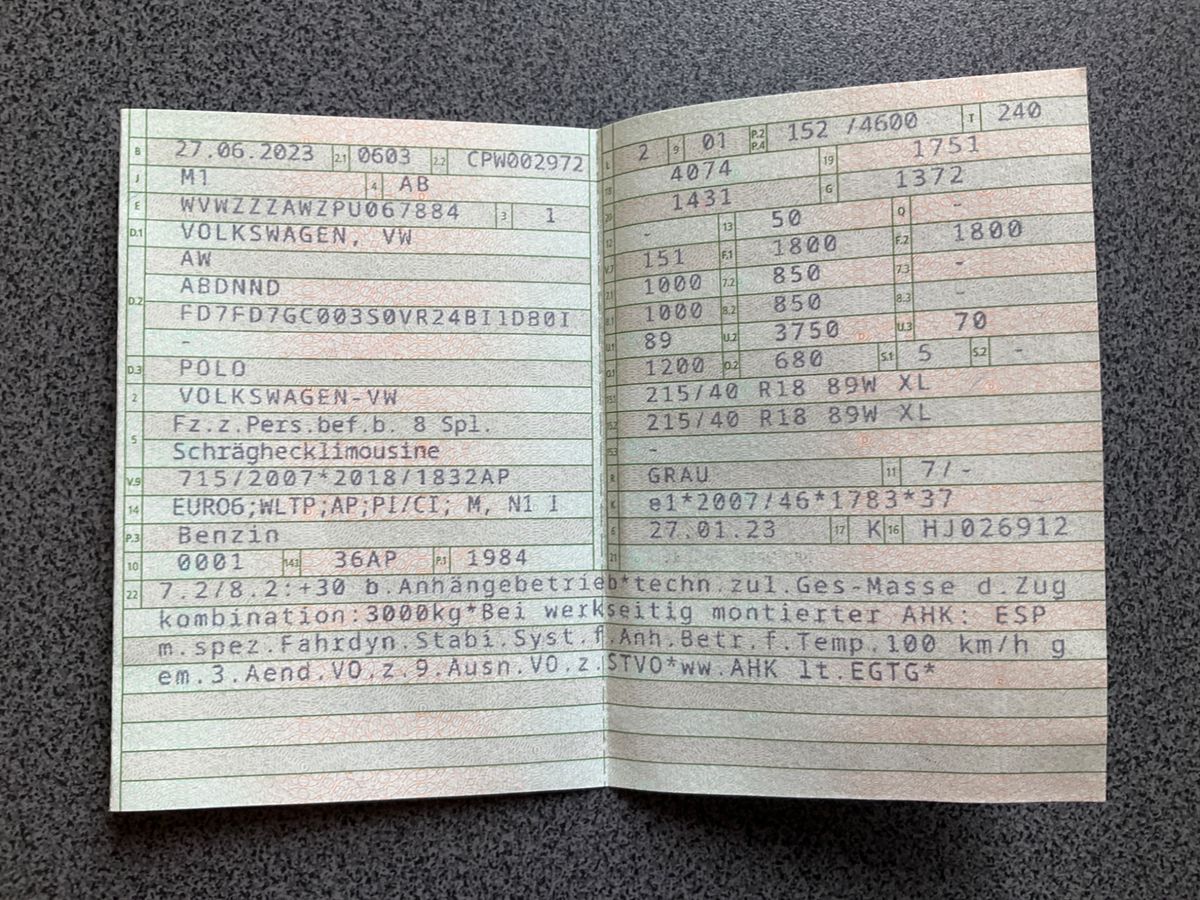 B 27.06.2023 2.1 0603 2.2 CPW002972
J M1 4 AB
E WVWZZZAWZPU067884 3 1
D.1 VOLKSWAGEN, VW
AW
D.2 ABDNND
FD7FD7GC003S0VR24BI1D80I
-
D.3 POLO
2 VOLKSWAGEN-VW
5 Fz.z.Pers.bef.b. 8 Spl.
Schräghecklimousine
V.9 715/2007*2018/1832AP
14 EURO6;WLTP;AP;PI/CI; M, N1 I
P.3 Benzin
10 0001 14.1 36AP P.1 1984
L 2 9 01 P.2 P.4 152 /4600 T 240
18 4074 19 1751
20 1431 G 1372
12 - 13 50 Q -
V.7 151 F.1 1800 F.2 1800
7.1 1000 7.2 850 7.3 -
8.1 1000 8.2 850 8.3 -
U.1 89 U.2 3750 U.3 70
O.1 1200 O.2 680 S.1 5 S.2 -
15.1 215/40 R18 89W XL
15.2 215/40 R18 89W XL
15.3 -
R GRAU 11 7/-
K e1*2007/46*1783*37
6 27.01.23 17 K 16 HJ026912
21
22 7.2/8.2:+30 b.Anhängebetrieb*techn.zul.Ges-Masse d.Zug
kombination:3000kg*Bei werkseitig montierter AHK: ESP
m.spez.Fahrdyn.Stabi.Syst.f.Anh.Betr.f.Temp.100 km/h g
em.3.Aend.VO.z.9.Ausn.VO.z.STVO*ww.AHK lt.EGTG*